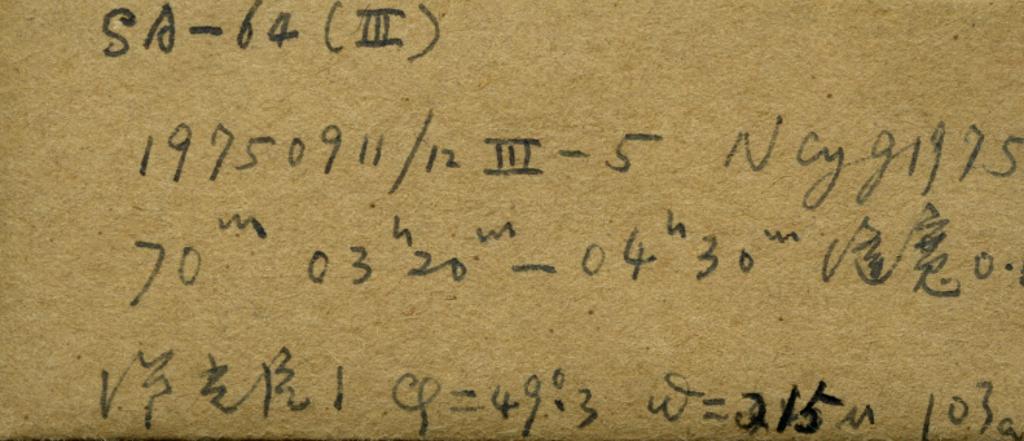 SA-64 (III)
19750911/12 III-5 N Cyg 1975
70ᵐ 03ʰ20ᵐ-04ʰ30ᵐ 缝宽 0.
光 1 φ=49°.3 w=215μ 103a